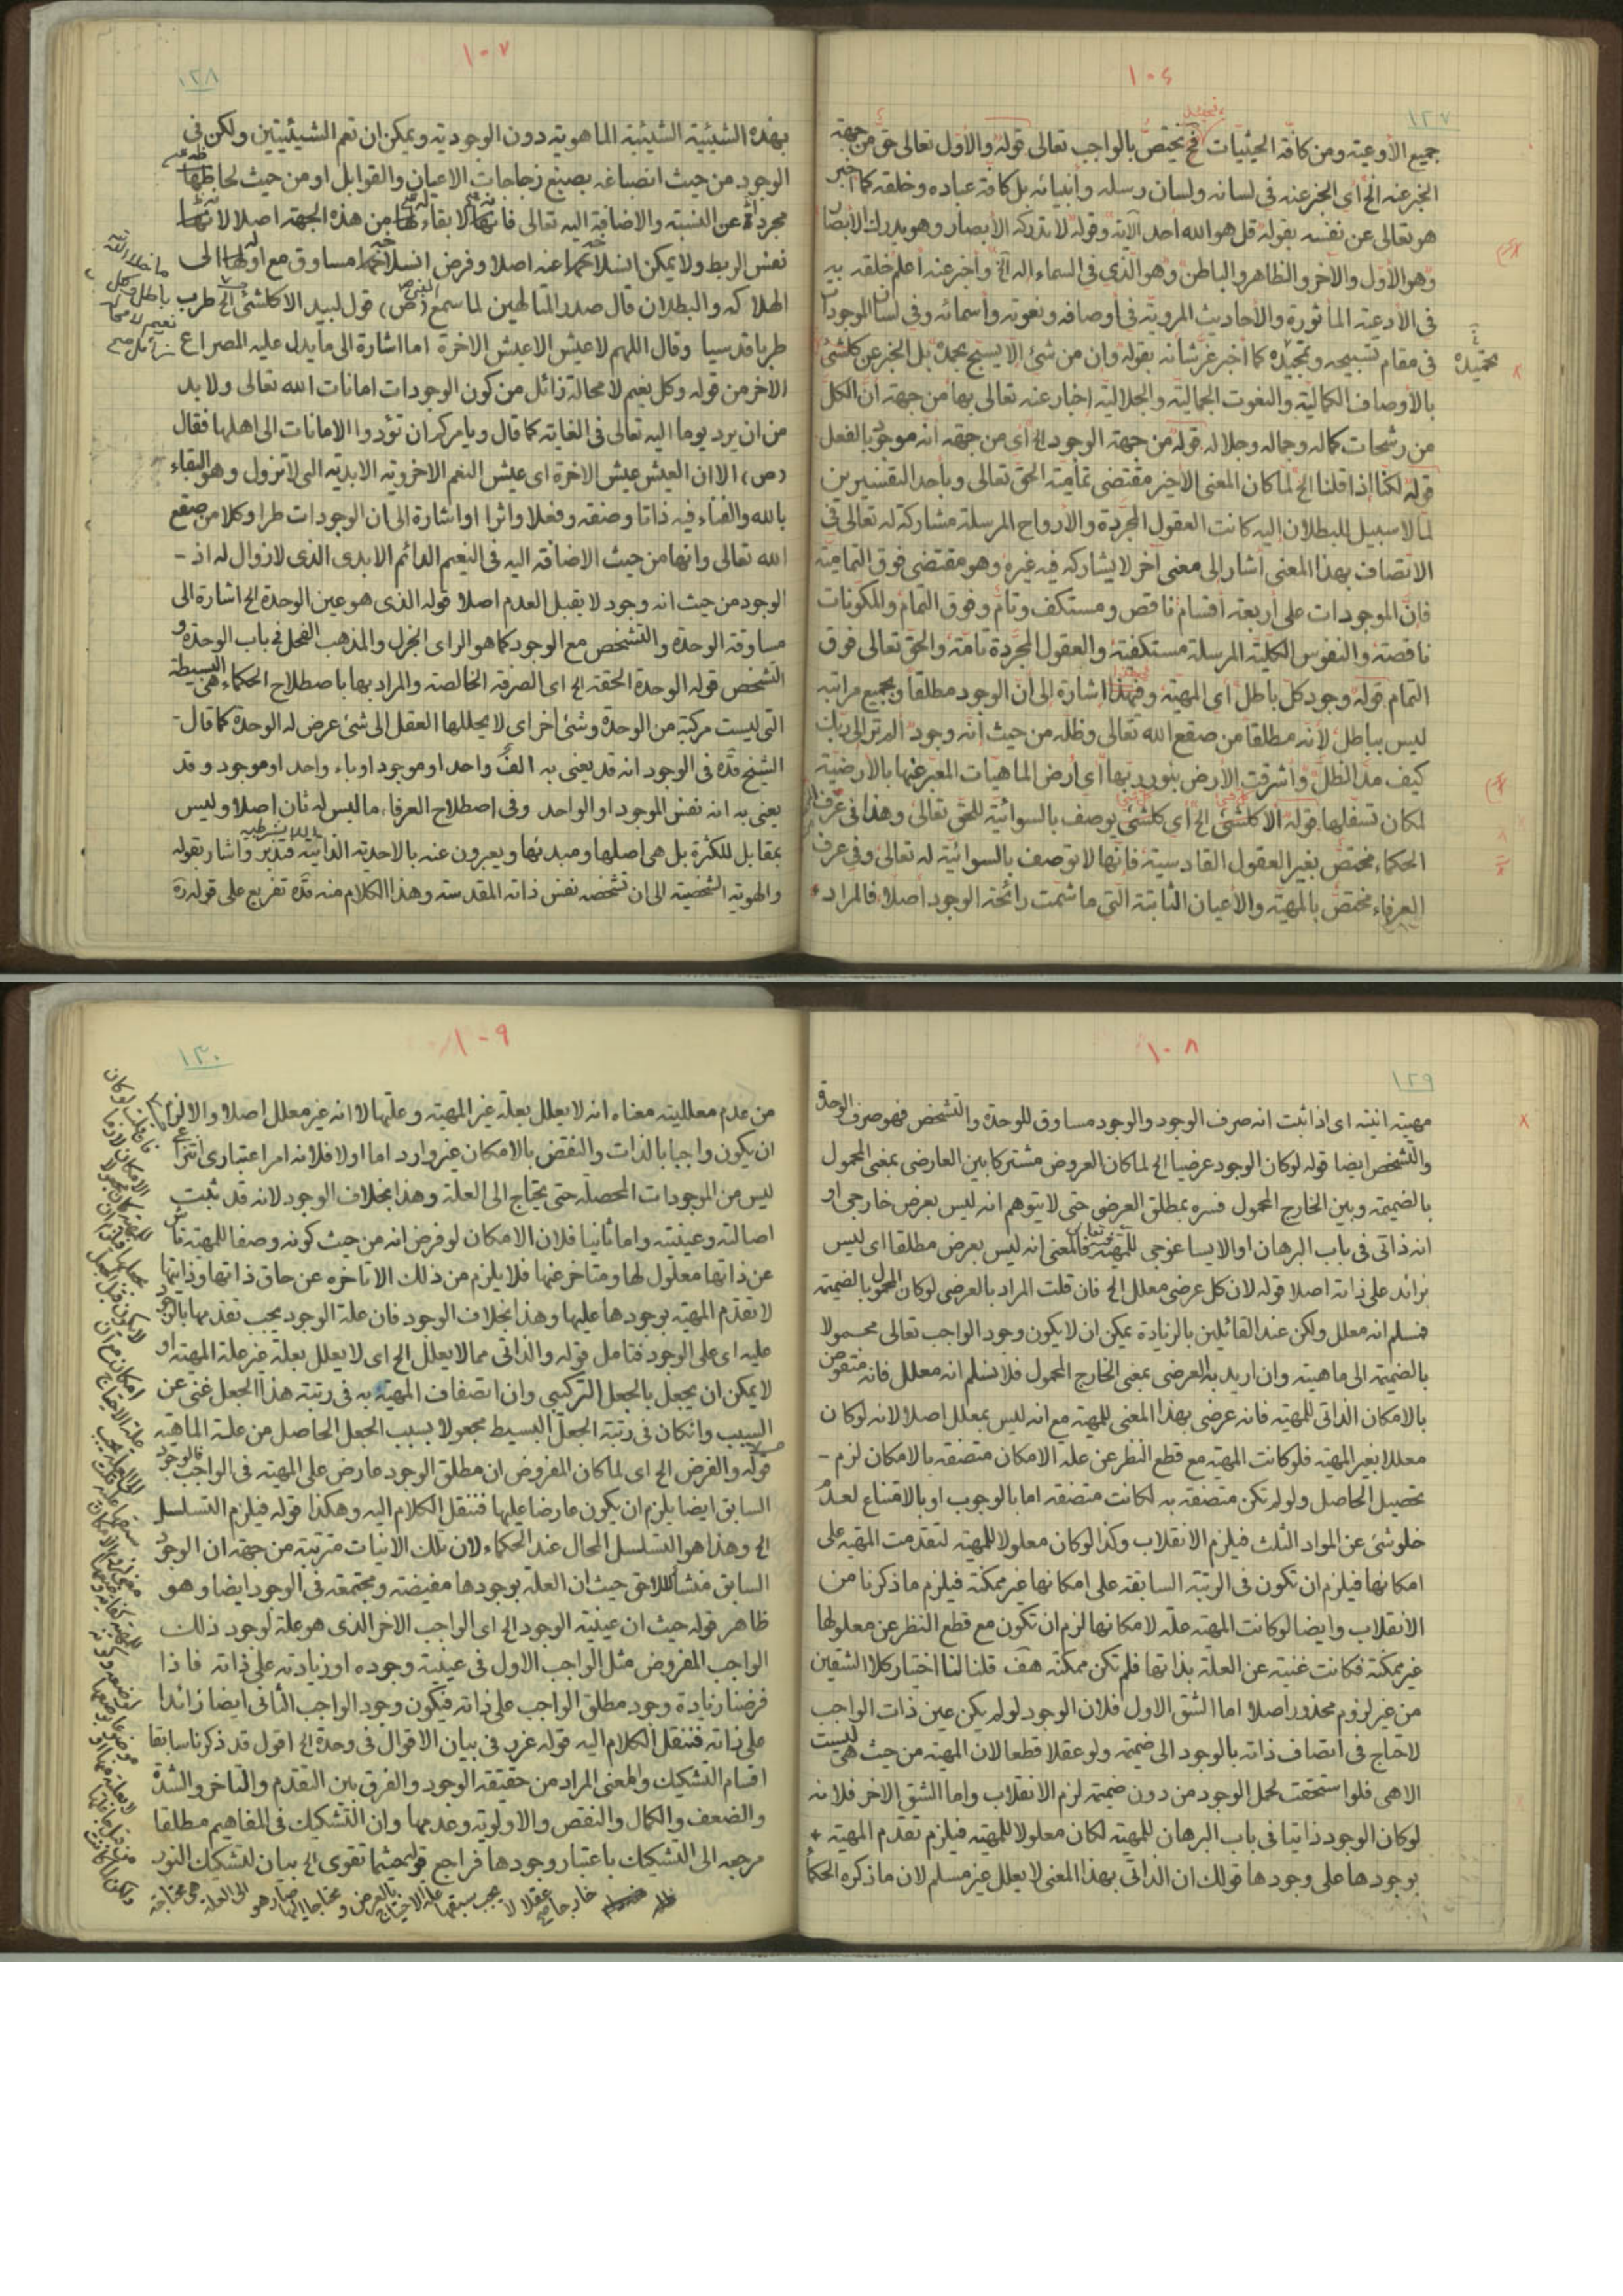 ١٠٤
١٢٧
جميع الأوعية ومن كافة الحيثيات فح يختص بالواجب تعالى قوله والأول تعالى حق من جهة
الخبر عنه الخ اى الخبر عنه فى لسانه ولسان رسله وانبيائه بل كافة عباده وخلقه كما اخبر
هو تعالى عن نفسه بقوله قل هو الله احد الآية وقوله لا تدركه الأبصار وهو يدرك الأبصار
وهو الأول والآخر والظاهر والباطن وهو الذى فى السماء اله الخ وأخبر عنه أعلم خلقه به
فى الادعية المأثورة والأحاديث المروية فى أوصافه ونعوته وأسمائه وفى لسان الموجودات
فى مقام تسبيحه وتمجيده كما أخبر عز شانه بقوله وان من شئ إلا يسبح بحمده بل الخبر عن كلشئ
تحميده
بالأوصاف الكمالية والنعوت الجمالية والجلالية إخبار عنه تعالى بها من جهة ان الكل
من رشحات كماله وجماله وجلاله قوله من جهة الوجود الخ أى من جهة أنه موجود بالفعل
قوله لكنا إذا قلنا الخ لما كان المعنى الأخير مقتضى تمامية الحق تعالى وبأحد التفسيرين
لما لا سبيل للبطلان اليه كانت العقول المجردة والأرواح المرسلة مشاركة له تعالى فى
الاتصاف بهذا المعنى أشار إلى معنى آخر لا يشاركه فيه غيره وهو مقتضى فوق التمامية
فإن الموجودات على أربعة أقسام ناقص ومستكف وتام وفوق التمام والمكونات
ناقصة والنفوس الكلية المرسلة مستكفية والعقول المجردة تامة والحق تعالى فوق
التمام قوله وجود كل باطل أى المهية وفهذا اشارة إلى أن الوجود مطلقا وبجميع مراتبه
ليس بباطل لأنه مطلقا من صقع الله تعالى وظله من حيث أنه وجود الم تر إلى ربك
كيف مد الظل وأشرقت الأرض بنور ربها أى أرض الماهيات المعبر عنها بالأرضية
لمكان تسفلها قوله ألا كلشئ الخ أى كلشئ يوصف بالسوائية للحق تعالى وهذا فى عرف
الحكماء مختص بغير العقول القادسية فإنها لا توصف بالسوائية له تعالى وفى عرف
العرفاء مختص بالمهية والأعيان الثابتة التى ما شمت رائحة الوجود أصلا فالمراد
١٠٧
١٢٨
بهذه الشيئية الشيئية الماهوية دون الوجودية ويمكن ان تعم الشيئيتين ولكن فى
الوجود من حيث انصباغه بصبغ زجاجات الاعيان والقوابل او من حيث لحاظها
مجردة عن النسبة والاضافة اليه تعالى فانها لا بقاء لها من هذه الجهة اصلا لانها
نفس الربط ولا يمكن انسلاخها عنه اصلا وفرض انسلاخها مساوق مع اولها الى
الهلاكه والبطلان قال صدر المتالهين لما سمع النبى (ص) قول لبيد الا كلشئ الخ طرب
ما خلا الله
باطل وكل
نعيم لا محالة
زائل
طربا قدسيا وقال اللهم لا عيش الا عيش الاخرة اما اشارة الى ما يدل عليه المصراع
الاخر من قوله وكل نعيم لا محالة زائل من كون الوجودات امانات الله تعالى ولا بد
من ان يرد يوما اليه تعالى فى الغاية كما قال ويامركم ان تؤدوا الامانات الى اهلها فقال
(ص) الا ان العيش عيش الاخرة اى عيش النعم الاخروية الابدية التى لا تزول وهو البقاء
بالله والفناء فيه ذاتا وصفة وفعلا واثرا او اشارة الى ان الوجودات طرا وكلا من صقع
الله تعالى وانها من حيث الاضافة اليه فى النعيم الدائم الابدى الذى لا زوال له اذ
الوجود من حيث انه وجود لا يقبل العدم اصلا قوله الذى هو عين الوحدة الخ اشارة الى
مساوقة الوحدة والتشخص مع الوجود كما هو الراى الجزل والمذهب الفحل فى باب الوحدة و
التشخص قوله الوحدة الحقة الخ اى الصرفة الخالصة والمراد بها باصطلاح الحكماء هى البسيطة
التى ليست مركبة من الوحدة وشئ اخر اى لا يحللها العقل الى شئ عرض له الوحدة كما قال
الشيخ قده فى الوجود انه قد يعنى به الف واحد او موجود او باء واحد او موجود وقد
يعنى به انه نفس الموجود او الواحد وفى اصطلاح العرفاء ما ليس له ثان اصلا وليس
بمقابل للكثرة بل هى اصلها ومبدئها ويعبرون عنه بالاحدية الذاتية فتدبر واشار بقوله
والهوية الشخصية الى ان تشخصه نفس ذاته المقدسة وهذا الكلام منه قده تفريع على قوله ره
١٠٨
١٢٩
مهيته انيته اى اذا ثبت انه صرف الوجود والوجود مساوق للوحدة والتشخص فهو صرف الوحدة
والتشخص ايضا قوله لو كان الوجود عرضيا الخ لما كان العروض مشتركا بين العارضى بمعنى المحمول
بالضميمة وبين الخارج المحمول فسره بمطلق العرضى حتى لا يتوهم انه ليس بعرض خارجى او
انه ذاتى فى باب البرهان او الايساغوجى للمهية فالمعنى انه ليس بعرض مطلقا اى ليس
بزائد على ذاته اصلا قوله لان كل عرضى معلل الخ فان قلت المراد بالعرضى لو كان المحمول بالضميمة
فنسلم انه معلل ولكن عند القائلين بالزيادة يمكن ان لا يكون وجود الواجب تعالى محمولا
بالضميمة الى ماهيته وان اريد به العرضى بمعنى الخارج المحمول فلا نسلم انه معلل فانه منقوض
بالامكان الذاتى للمهية فانه عرضى بهذا المعنى للمهية مع انه ليس بمعلل اصلا لانه لو كان
معللا بغير المهية فلو كانت المهية مع قطع النظر عن علة الامكان متصفة بالامكان لزم
تحصيل الحاصل ولو لم تكن متصفة به لكانت متصفة اما بالوجوب او بالامتناع لعدم
خلو شئ عن المواد الثلث فيلزم الانقلاب وكذا لو كان معلولا للمهية لتقدمت المهية على
امكانها فيلزم ان تكون فى الرتبة السابقة على امكانها غير ممكنة فيلزم ما ذكرنا من
الانقلاب وايضا لو كانت المهية علة لامكانها لزم ان تكون مع قطع النظر عن معلولها
غير ممكنة فكانت غنية عن العلة بذاتها فلم تكن ممكنة هف قلنا لنا اختيار كلا الشقين
من غير لزوم محذور اصلا اما الشق الاول فلان الوجود لو لم يكن عين ذات الواجب
لاحتاج فى اتصاف ذاته بالوجود الى ضميمة ولو عقلا قطعا لان المهية من حيث هى ليست
الا هى فلو استحقت لحمل الوجود من دون ضميمة لزم الانقلاب واما الشق الاخر فلانه
لو كان الوجود ذاتيا فى باب البرهان للمهية لكان معلولا للمهية فيلزم تقدم المهية
بوجودها على وجودها قولك ان الذاتى بهذا المعنى لا يعلل غير مسلم لان ما ذكره الحكماء
١٠٩
١٣٠
من عدم معللية معناه انه لا يعلل بعلة غير المهية وعلتها لا انه غير معلل اصلا والا لزم
ان يكون واجبا بالذات والنقض بالامكان غير وارد اما اولا فلانه امر اعتبارى انتزاعى
ليس من الموجودات المحصلة حتى يحتاج الى العلة وهذا بخلاف الوجود لانه قد ثبت
اصالته وعينيته واما ثانيا فلان الامكان لو فرض انه من حيث كونه وصفا للمهية ناش
عن ذاتها معلول لها ومتاخر عنها فلا يلزم من ذلك الا تاخره عن حاق ذاتها وذاتيتها
لا تقدم المهية بوجودها عليها وهذا بخلاف الوجود فان علة الوجود يجب تقدمها بالوجود
عليه اى على الوجود فتامل قوله والذاتى مما لا يعلل الخ اى لا يعلل بعلة غير علة المهية او
لا يمكن ان يجعل بالجعل التركيبى وان اتصاف المهية به فى رتبة هذا الجعل غنى عن
السبب وانكان فى رتبة الجعل البسيط مجعولا بسبب الجعل الحاصل من علة الماهية
قوله والفرض الخ اى لما كان المفروض ان مطلق الوجود عارض على المهية فى الواجب فالوجود
السابق ايضا يلزم ان يكون عارضا عليها فننقل الكلام اليه وهكذا قوله فيلزم التسلسل
الخ وهذا هو التسلسل المحال عند الحكماء لان تلك الانيات مترتبة من جهة ان الوجود
السابق منشأ للاحق حيث ان العلة بوجودها مفيضة ومجتمعة فى الوجود ايضا وهو
ظاهر قوله حيث ان عينية الوجود الخ اى الواجب الاخر الذى هو علة لوجود ذلك
الواجب المفروض مثل الواجب الاول فى عينية وجوده او زيادته على ذاته فاذا
فرضنا زيادة وجود مطلق الواجب على ذاته فيكون وجود الواجب الثانى ايضا زائدا
على ذاته فننقل الكلام اليه قوله غرر فى بيان الاقوال فى وحدة الخ اقول قد ذكرنا سابقا
اقسام التشكيك والمعنى المراد من حقيقة الوجود والفرق بين التقدم والتاخر والشدة
والضعف والكمال والنقص والاولوية وعدمها وان التشكيك فى المفاهيم مطلقا
مرجعه الى التشكيك باعتبار وجودها فراجع قوله حيثما تقوى الخ بيان لتشكيك النور